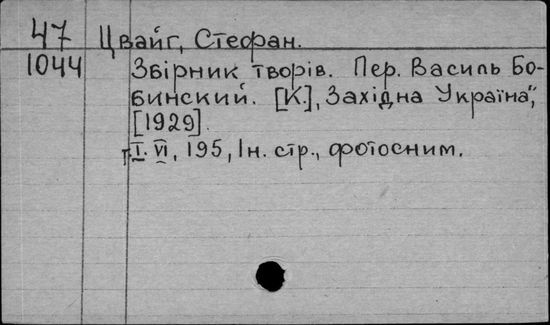 47 Цвайг, Стефан.
1044 Збірник творів. Пер. Василь Бо-
бинский. [К.], Західна Україна",
[1929].
т. I. VI, 195, Ін. стр., фотосним.